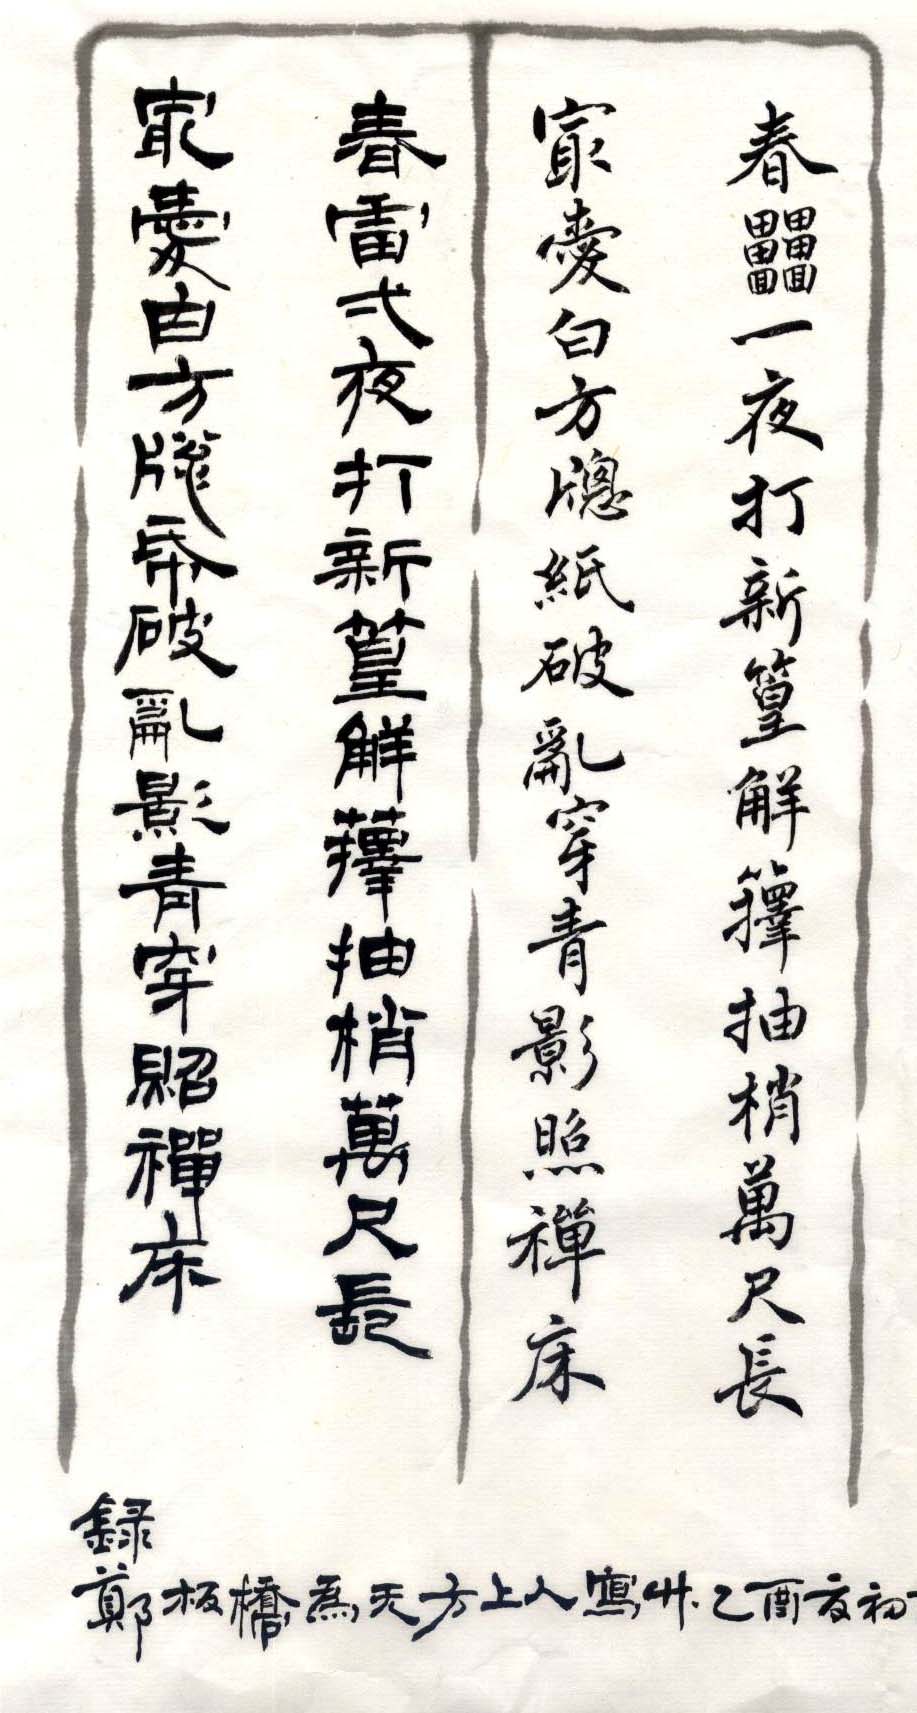 春雷一夜打新篁解籜抽梢萬尺長
㝡愛白方牕紙破亂穿青影照禪床
春雷弌夜打新篁解蘀抽梢萬尺長
㝡愛白方牕帋破亂影青穿照禪床
録
鄭板橋為天方上人寫竹乙酉夏初